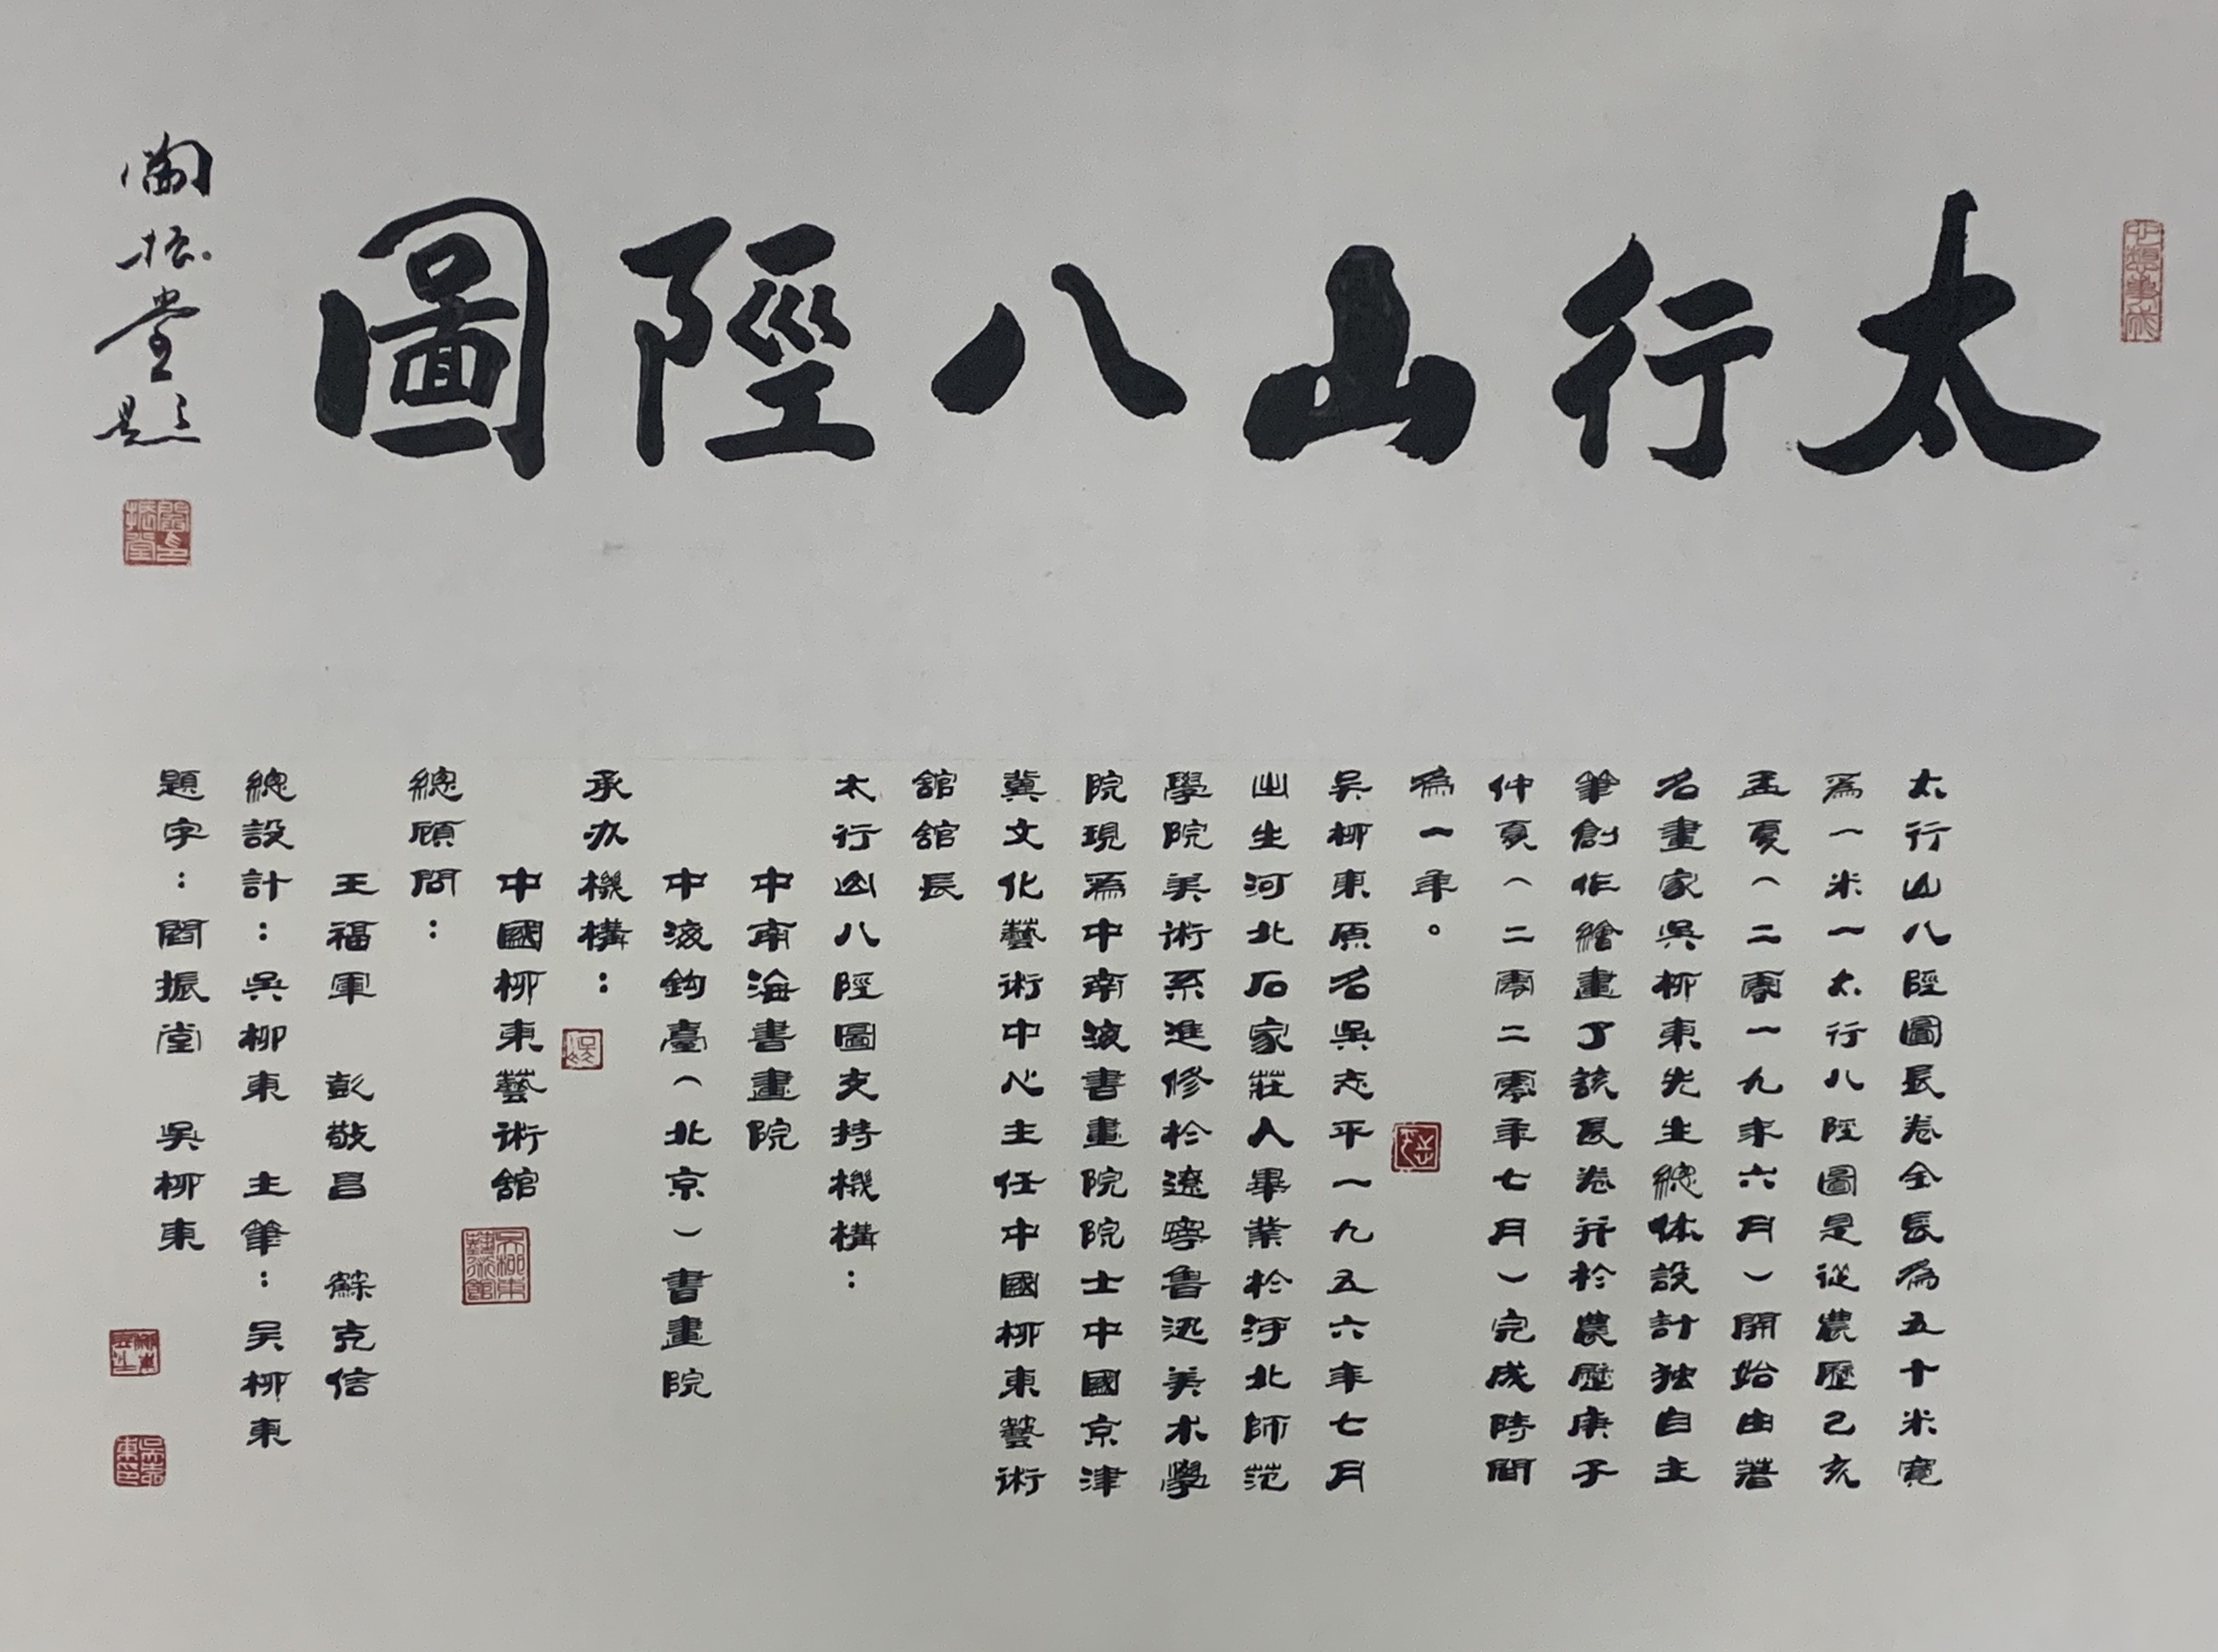 太行山八陘圖
閻振堂題
太行山八陘圖長卷全長為五十米寬
為一米一太行八陘圖是從農歷己亥
孟夏(二零一九年六月)開始由著
名畫家吳柳東先生總体設計独自主
筆創作繪畫了該長卷并於農歷庚子
仲夏(二零二零年七月)完成時間
為一年。
吳柳東原名吳志平一九五六年七月
出生河北石家莊人畢業於河北師范
學院美術系進修於遼寧魯迅美术學
院現為中南海書畫院院士中國京津
冀文化藝術中心主任中國柳東藝術
舘舘長
太行山八陘圖支持機構:
中南海書畫院
中海鈎臺(北京)書畫院
承办機構:
中國柳東藝術舘
總顧問:
王福軍 彭敬昌 蘇克信
總設計:吳柳東 主筆:吴柳東
題字:閻振堂 吳柳東